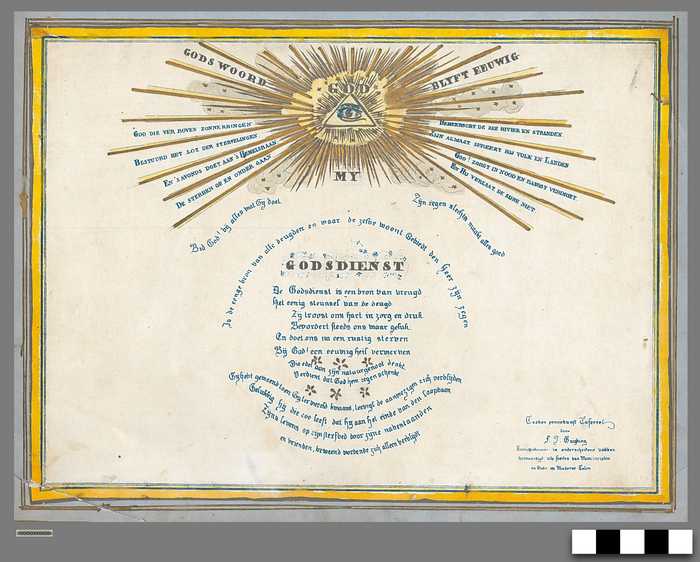 GODS WOORD
GOD
BLYFT EEUWIG
GOD DIE VER BOVEN ZONNEKRINGEN
BESTUURD HET LOT DER STERVELINGEN
EN 'S AVONDS DOET AAN 'S HEMELSBAAN
DE STERREN OP EN ONDER GAAN
BEHEERSCHT DE ZEE RIVIER EN STRANDEN
ZIJN ALMAGT SPREEKT BIJ VOLK EN LANDEN
GOD! ZORGT IN NOOD EN BANGST VERDRIET
EN HIJ VERLAAT DE ZIJNE NIET
MY
Bid God! bij alles wat Gy doet
Zijn zegen slechts maakt alles goed
Is de eenige bron van alle deugden en waar de zelve woont Gebiedt den heer zijn zegen
GODSDIENST
De Godsdienst is een bron van vreugd
Het eenig steunsel van de deugd
Zy troost ons hart in zorg en druk
Bevordert steeds ons waar geluk
En doet ons na een rustig sterven
Bij God! een eeuwig heil verwerven
Die edel aan zijn natuurgenoot denkt
Verdient dat God hem zegen schenkt
Gij hebt geweend toen Gy ter wereld kwaamt, terwijl de aanwezigen zich verblijden
Gelukkig hij die zoo leeft dat hij aan het einde van den loopbaan
Zijns levens op zijn sterfbed door zijne nabestaanden
en vrienden, beweend wordende zich alleen verblijdt
door
F. J.
in onderscheidene vakken